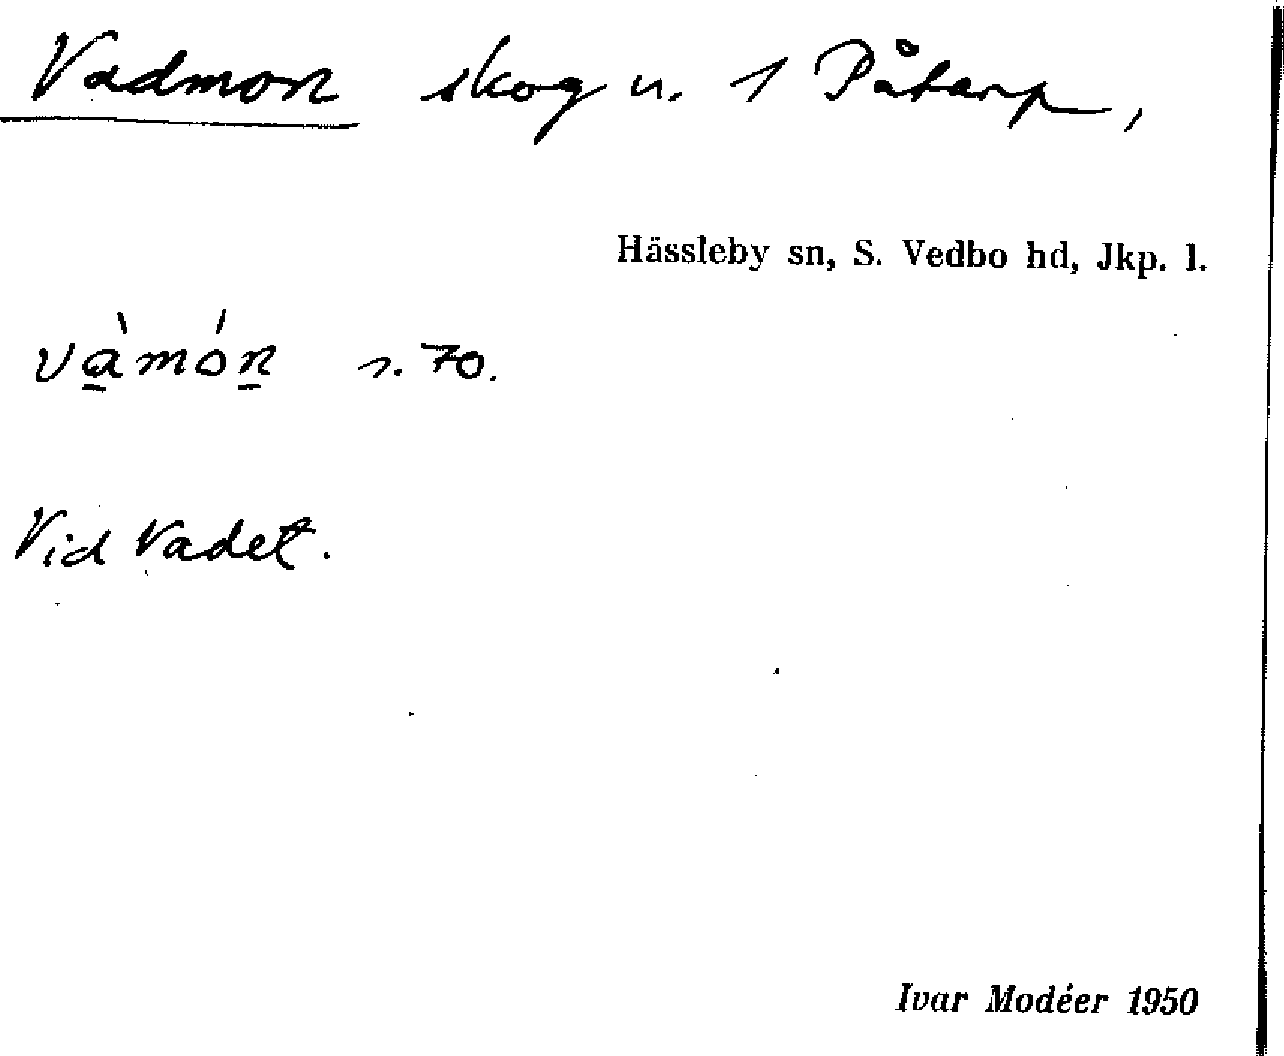 Vadmon skog u. 1 Påtarp,
Hässleby sn, S. Vedbo hd, Jkp. l.
vàmón s. 70.
Vid Vadet.
Ivar Modéer 1950